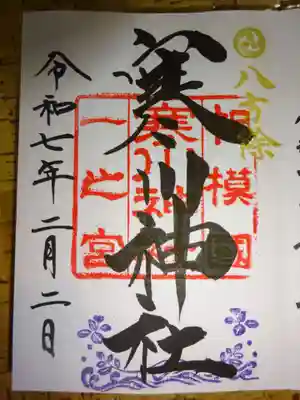 八方除
相模國
寒川神社
一之宮
令和七年二月二日